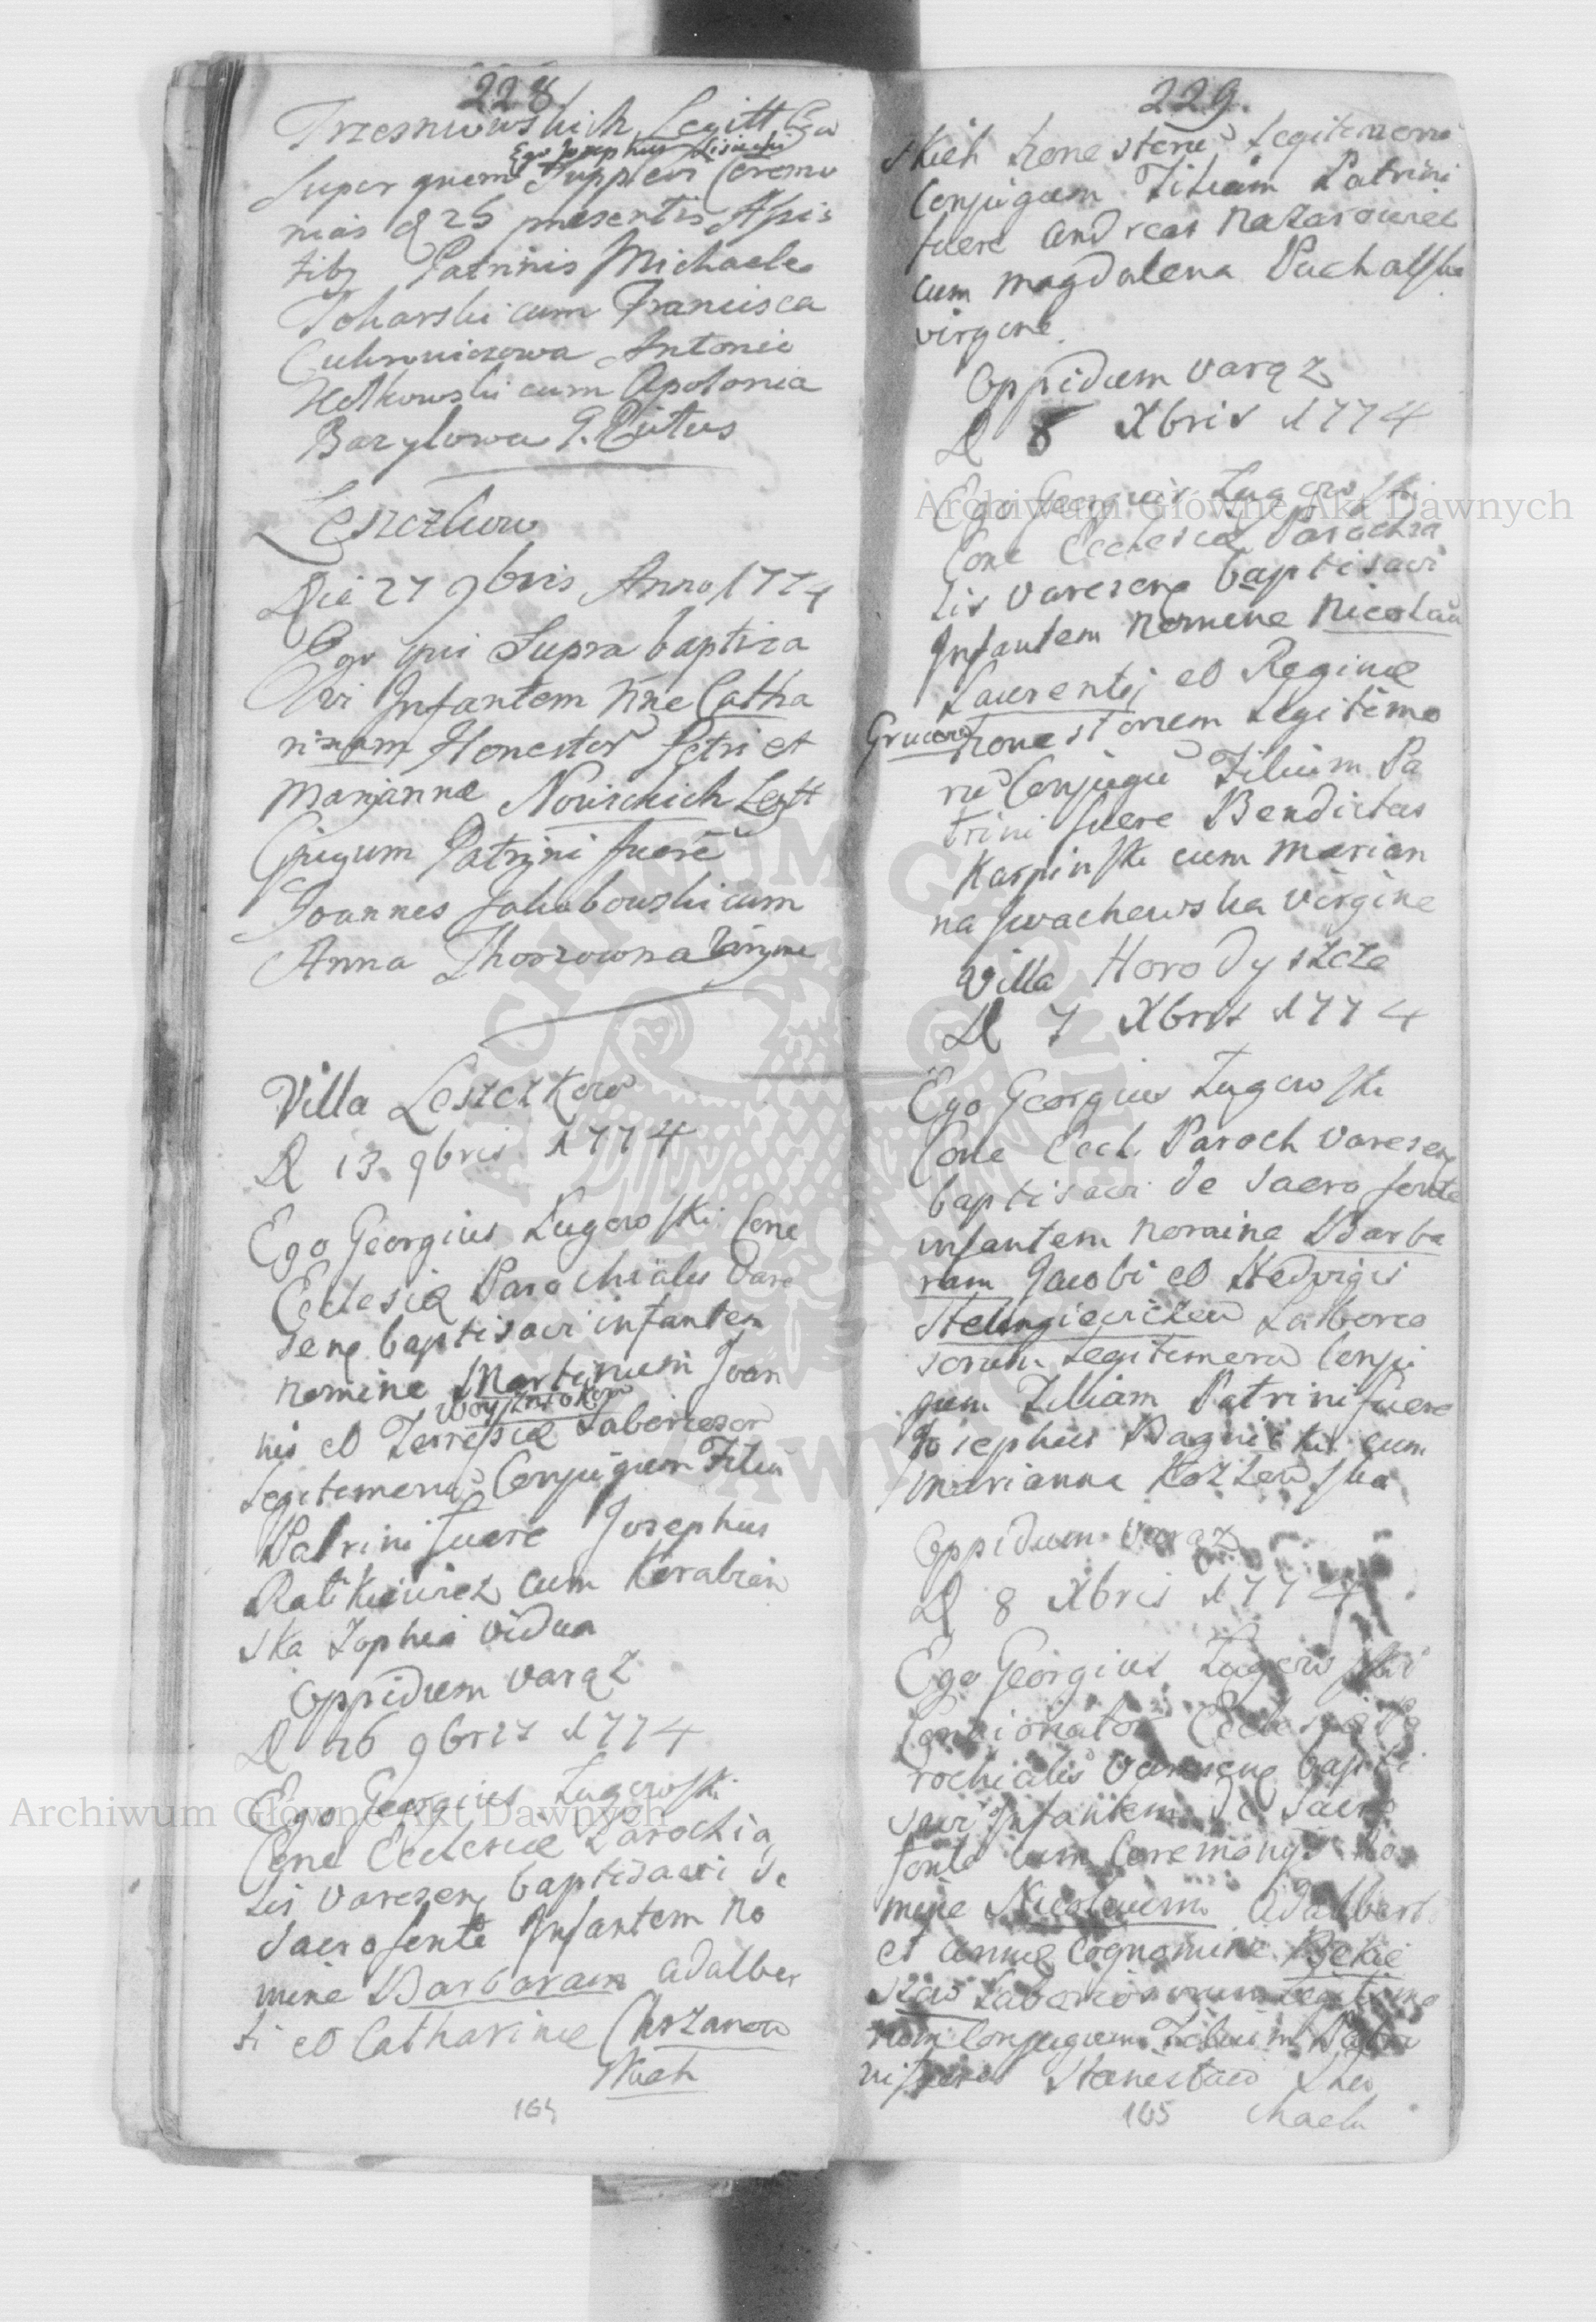 228
Trzesniowskich Legitt
Ego Josephus Lisiecki
Super quem Supplevi Ceremo
nias d 25 praesentis Assis
tibq Patrinis Michaele
Toharski cum Francisca
Antonio
cum Apolonia
Barylowa
Leszczkow
Die 27 9bris Anno 1774
Ego qui Supra baptiza
vi Infantem nne Catha
rinam Honestor Petri et
Marjannae Nowickich Legtt
Cjugum Patrini fuere
Joannes Jakubowski cum
Anna Virgine
Villa Leszczkow
D 13 9bris 1774
Ego Georgius Lugowski Cone
Eclesiae Parochialis Vare
sens baptisavi infantem
nomine Martinum Joan
Woyszniokow
nis et Terresiae Laboriosor
Legitimoru Conjugum Filiu
Patrini fuere Josephus
Ratikiewicz cum Korabian
ska Zophia vidua
Oppidum Varąz
D 26 9bris 1774
Ego Georgius Lugowski
Cone Ecclesiae Parochia
lis Varezens baptisavi de
Sacro fonte Infantem no
mine Barbaram adalber
ti et Catharinae Chrzanow
skich
164
229.
skich honestoru Legitimoru
Conjugum Filiam Patrini
fuere Andreas Nazarowicz
cum Magdalena Puchalska
virgine.
Oppidum Varąz
D 8 Xbris 1774
Ego Georgius Lugowski
Cone Ecclesiae Parochia
lis Varezens baptisavi
Infantem nomine Nicolau
Laurentij et Reginae
Honestorum Legitimo
ru Conjugu Filium Pa
trini fuere Bendictus
Karpinski cum Marian
na Iwachewska virgine
Villa Horodyszcze
D 7 Xbris 1774
Ego Georgius Lugowski
Cone Eccl. Paroch Varezens
baptisavi de Sacro fonte
infantem nomine Barba
ram Jacobi et Hedvigis
Laborio
sorum Legitimoru Conju
gum Filiam Patrini fuere
Josephus Bagnicki cum
Marianna Kozlewska
Oppidum Varąz
D 8 Xbris 1774
Ego Georgius Lugowski
Concionator Eclesiae Pa
rochialis Varezens bapti
savi Infantem de Sacro
fonte cum Ceremonys no
mine Nicolaum Adalberti
et Annae Cognomine
Laboriosorum Legitimo
rum Conjugum Filium Patri
ni fuere Stanisław
165
Archiwum Główne Akt Dawnych
Archiwum Główne Akt Dawnych
ARCHIWUM GŁÓWNE AKT DAWNYCH